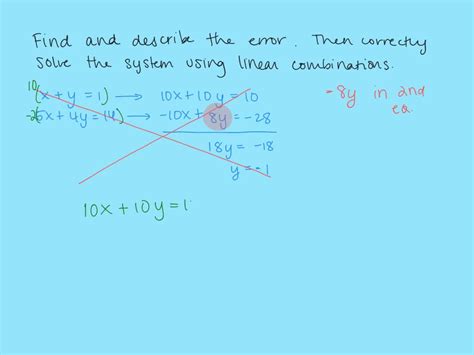 Find and describe the error. Then correctly
solve the system using linear combinations.
10(x + y = 1) → 10x + 10y = 10
-2(5x + 4y = 14) → -10x + 8y = -28
18y = -18
y = -1
-8y in 2nd
eq.
10x + 10y = 1